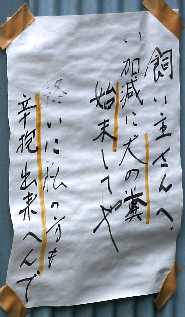 飼い主さんへ
い加減に犬の糞
始末してや
終いに私の方も
辛抱出来へんで